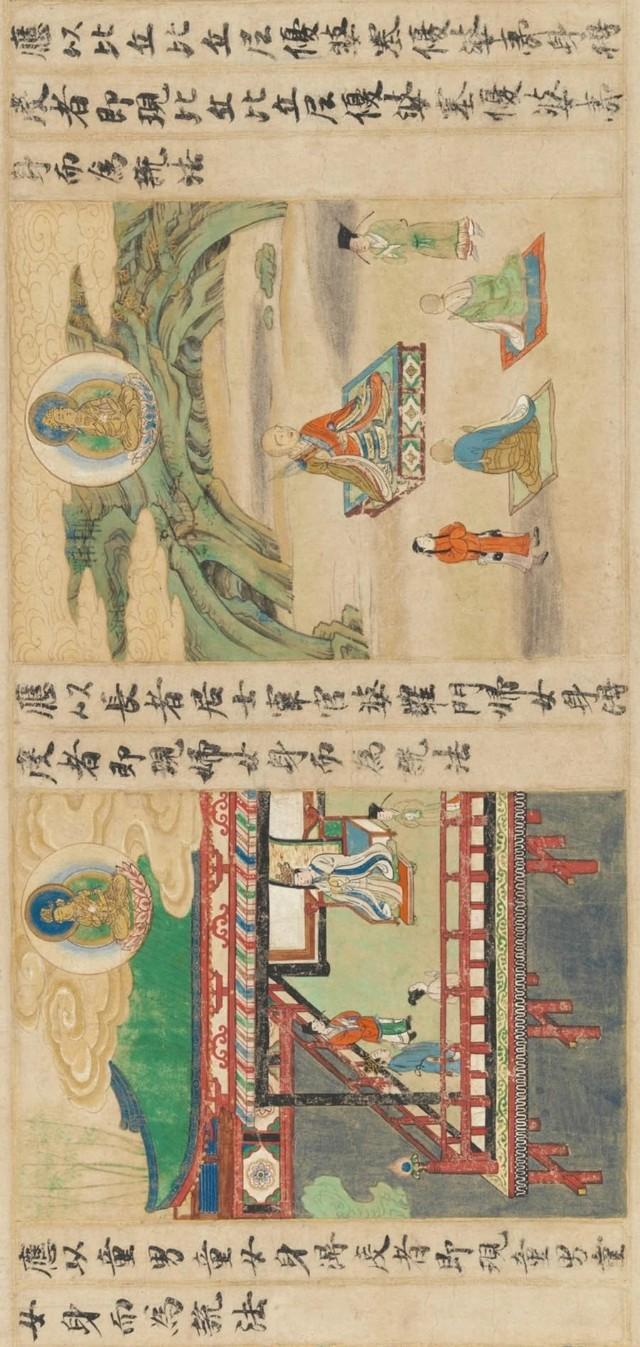 應以比丘比丘尼優婆塞優婆夷身得
度者即現比丘比丘尼優婆塞優婆夷
身而為說法
應以長者居士宰官婆羅門婦女身得
度者即現婦女身而為說法
應以童男童女身得度者即現童男童
女身而為說法